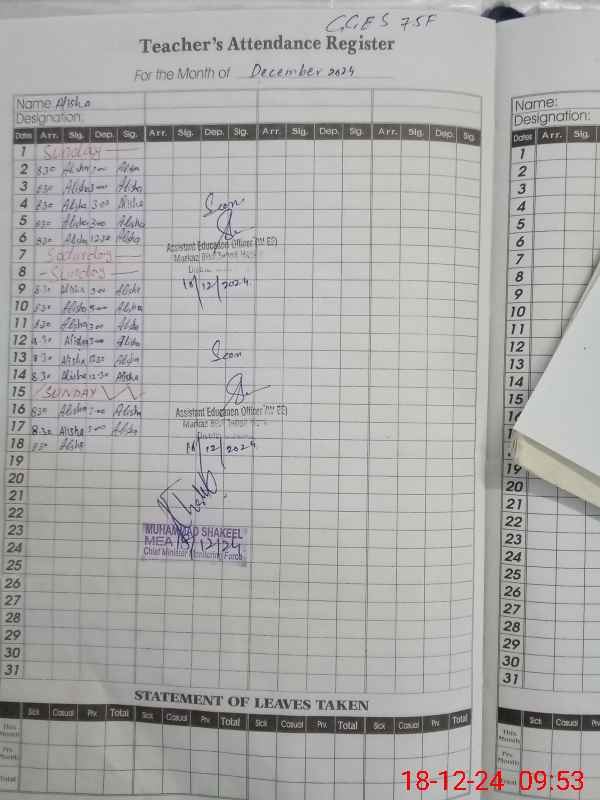 GGES 75F
Teacher's Attendance Register
For the Month of December 2024
Name Alisha
Designation:
Dates Arr. Sig. Dep. Sig. Arr. Sig. Dep. Sig. Arr. Sig. Dep. Sig. Arr. Sig. Dep. Sig.
1 Sunday
2 8.30 Alisha 3.00 Alisha
3 8.30 Alisha 3.00 Alisha
4 8.30 Alisha 3.00 Alisha
5 8.30 Alisha 3.00 Alisha
6 8.30 Alisha 12.30 Alisha
7 Saturday
8 Sunday
9 8.30 Alisha 3.00 Alisha
10 8.30 Alisha 3.00 Alisha
11 8.30 Alisha 3.00 Alisha
12 8.30 Alisha 3.00 Alisha
13 8.30 Alisha 12.30 Alisha
14 8.30 Alisha 12.30 Alisha
15 SUNDAY
16 8.30 Alisha 3.00 Alisha
17 8.30 Alisha 3.00 Alisha
18 8.30 Alisha
19
20
21
22
23
24
25
26
27
28
29
30
31
Seen
Assistant Education Officer (W EE)
Markaz
10/12/2024
Seen
Assistant Education Officer (W EE)
Markaz
16/12/2024
MUHAMMAD SHAKEEL
MEA 18/12/24
Chief Minister Monitoring Force
STATEMENT OF LEAVES TAKEN
Sick Casual Prv. Total Sick Casual Prv. Total Sick Casual Prv. Total Sick Casual Prv. Total
This Month
Prv. Month
Total
Name:
Designation:
Dates Arr. Sig.
1
2
3
4
5
6
7
8
9
10
11
12
13
14
15
16
19
20
21
22
23
24
25
26
27
28
29
30
31
Sick Casual
This Month
Prv. Month
Total
18-12-24 09:53